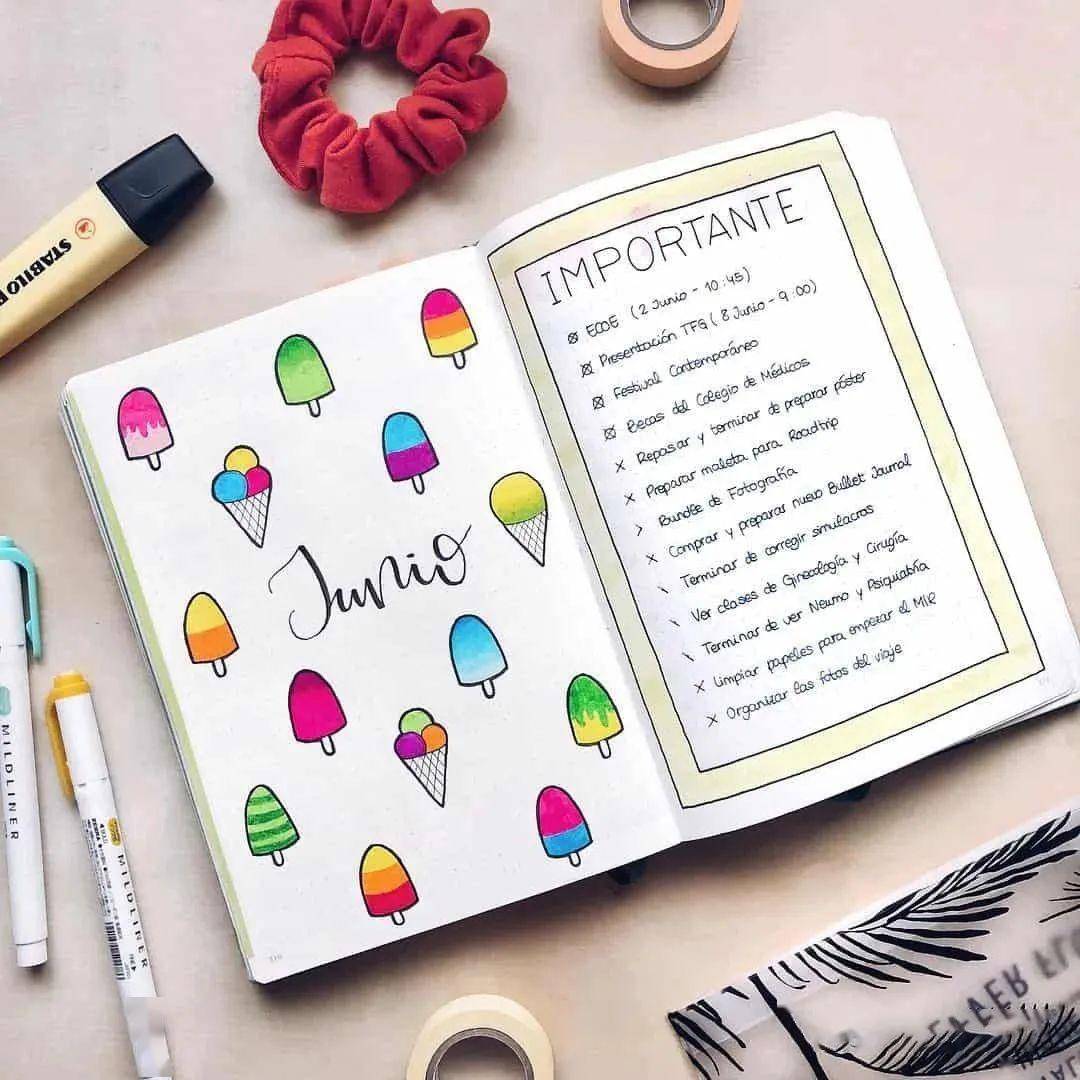 STABILO
Junio
IMPORTANTE
☒ ECOE (2 Junio - 10:45)
☒ Presentación TFG (8 Junio - 9:00)
☒ Festival Contemporáneo
☒ Becas del Colegio de Médicos
× Repasar y terminar de preparar póster
× Preparar maleta para Roadtrip
> Bundle de Fotografía
× Comprar y preparar nuevo Bullet Journal
\ Terminar de corregir simulacros
\ Ver clases de Ginecología y Cirugía
\ Terminar de ver Neumo y Psiquiatría
× Limpiar papeles para empezar el MIR
× Organizar las fotos del viaje
MILDLINER
MILDLINER